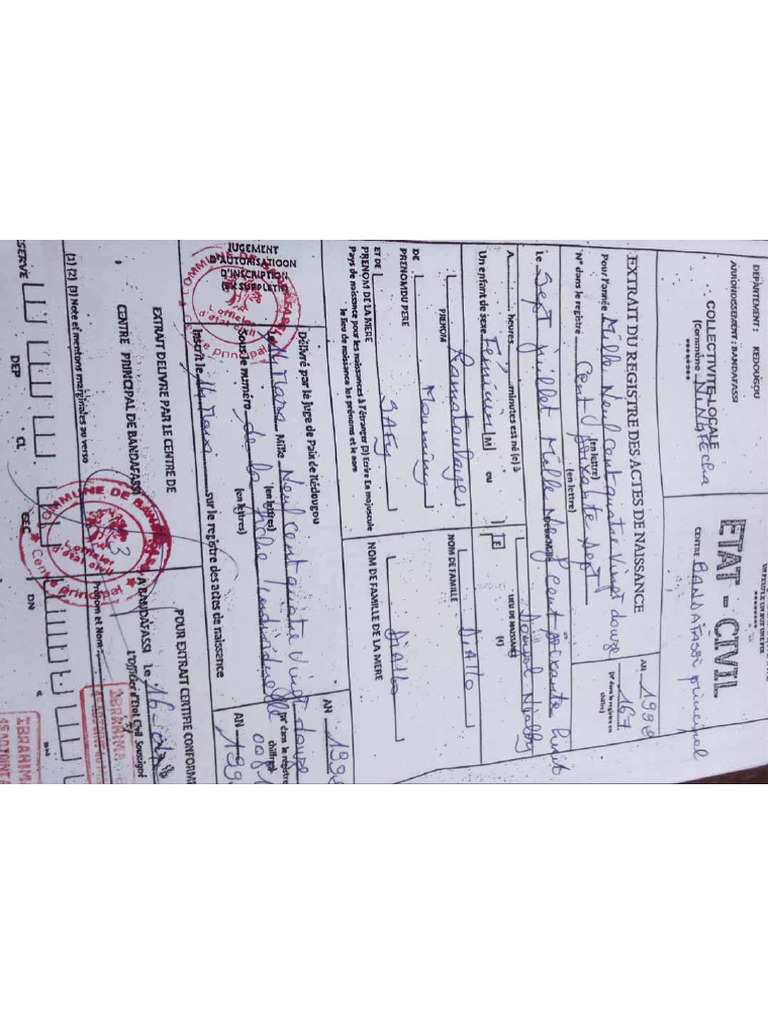 DEPARTEMENT : KEDOUGOU
ARRONDISSEMENT : BANDAFASSI
********
COLLECTIVITE LOCALE
(Commune NINEFECHA
********
ETAT - CIVIL
CENTRE BANDAFASSI principal
EXTRAIT DU REGISTRE DES ACTES DE NAISSANCE
Pour l'année Mille Neuf Cent quatre Vingt douze
(en lettre)
AN 1992
N° dans le registre Cent Soixante Sept
(en lettre)
167
(N° dans le registre en chiffre)
Le Sept juillet Mille Neuf Cent soixante huit
A heures minutes est né (e) à Doupol Ndalby
LIEU DE NAISSANCE
Un enfant de sexe Feminin M ou F
(1)
Ramatoulaye DiAllo
PRENOM NOM DE FAMILLE
DE Mouminy
PRENOM DU PERE
ET DE SAFy DiAllo
PRENOM DE LA MERE NOM DE FAMILLE DE LA MERE
Pays de naissance pour les naissances à l'étranger (2) Ecrire En majuscule
le lieu de naissance les prénoms et le nom
JUGEMENT
D'AUTORISATIOON
D'INSCRIPTION
(EX SUPPLETIF)
Délivré par le Juge de Paix de Kédougou
Le 14 Mars Mille Neuf Cent quatre Vingt douze
(en lettres)
AN 1992
Sous le numéro de la fiche individuelle
(en lettres)
(N° dans le registre
chiffre)
0081
Inscrit le 14 Mars sur le registre des actes de naissance
AN 199
COMMUNE DE BANDAFASSI
L'officier
d'état civil
Centre principal
EXTRAIT DELIVRE PAR LE CENTRE DE
CENTRE PRINCIPAL DE BANDAFASSI
POUR EXTRAIT CERTIFIE CONFORME
A BANDAFASSI le 16-07
L'Officier d'Etat Civil Soussigné
Prénom et Nom
(1) (2) (3) Note et mentions marginales au verso
COMMUNE DE BANDAFASSI
L'officier
d'état civil
Centre principal
IBRAHIMA
IBRAHIM
SERVE
DEP
CL
CEC
DN